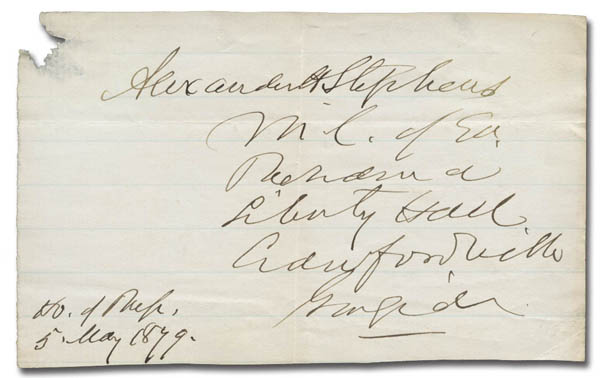 Alexander H Stephens
M. C. of Ga.
Residence
Liberty Hall
Crawfordville
Georgia
Ho. of Reps.
5. May 1879.